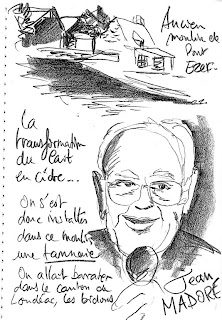 Ancien
moulin de
Pont
Ezer.
La
transformation
du lait
en cidre...
On s'est
donc installés
dans ce moulin,
une tannerie
On allait barater
dans le canton de
Loudéac, les bidons
Jean
MADORÉ